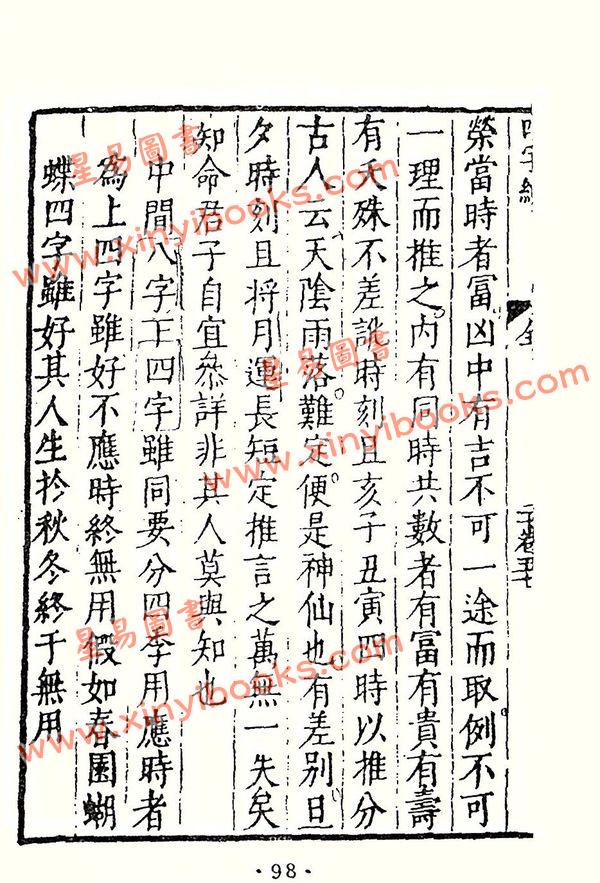 四字經
全
榮當時者冨凶中有吉不可一途而取例不可
一理而推之内有同時共數者有冨有貴有壽
有夭殊不差訛時刻且亥子丑寅四時以推分
古人云天陰雨落難定便是神仙也有差别旦
夕時刻且將月運長短定推言之萬無一失矣
知命君子自宜叅詳非其人莫與知也
中間八字王四字雖同要分四季用應時者
為上四字雖好不應時終無用假如春園蝴
蝶四字雖好其人生扵秋冬終于無用
·98·
星易圖書
www.xinyibooks.com
星易圖書
www.xinyibooks.com
星易圖書
www.xinyibooks.com